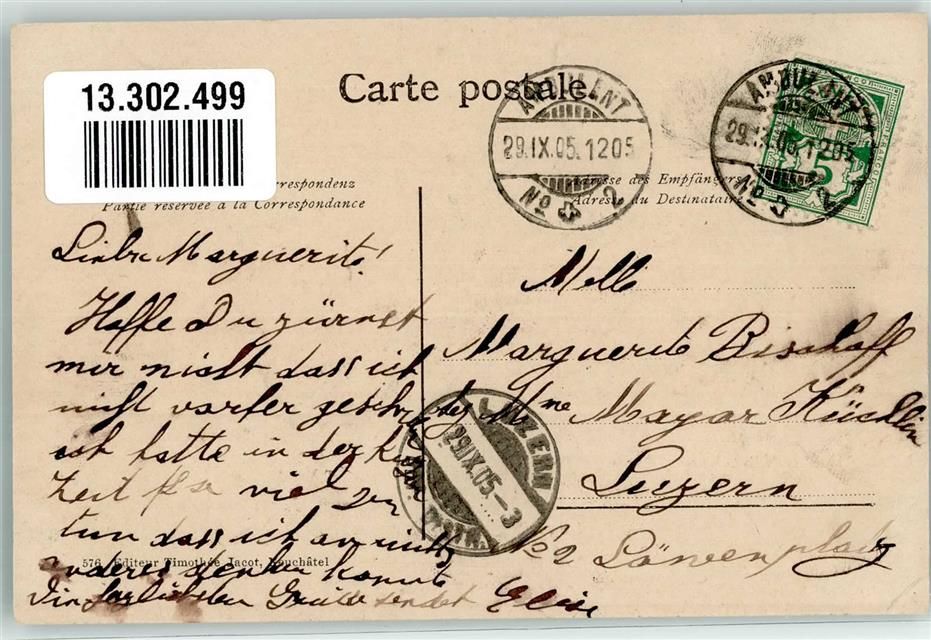 13.302.499
Carte postale.
AMBULANT
29.IX.05.1205
No 3
AMBULANT
29.IX.05.1205
No 3
5
Adresse des Empfängers
Partie réservée à la Correspondance
Adresse du Destinataire
Liebe Marguerite!
Hoffe Du zürnst
mir nicht dass ich
nicht vorher
ich hatte in der
Zeit so viel zu
tun dass ich an nichts
anderes denken konnte
Die herzlichsten Grüsse sendet Elise
Melle
Marguerite Bischoff
bei Mme Mayar Küchlin
Luzern
No 2 Löwenplatz
LUZERN
29.IX.05.-3
576 Editeur Timothée Jacot, Neuchâtel